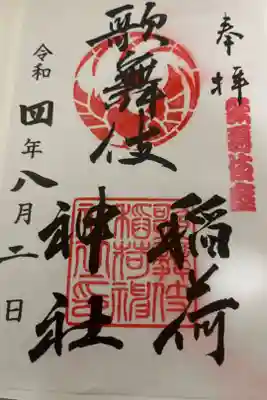 奉拝
歌舞伎座
歌舞伎
稲荷
神社
令和四年八月二日